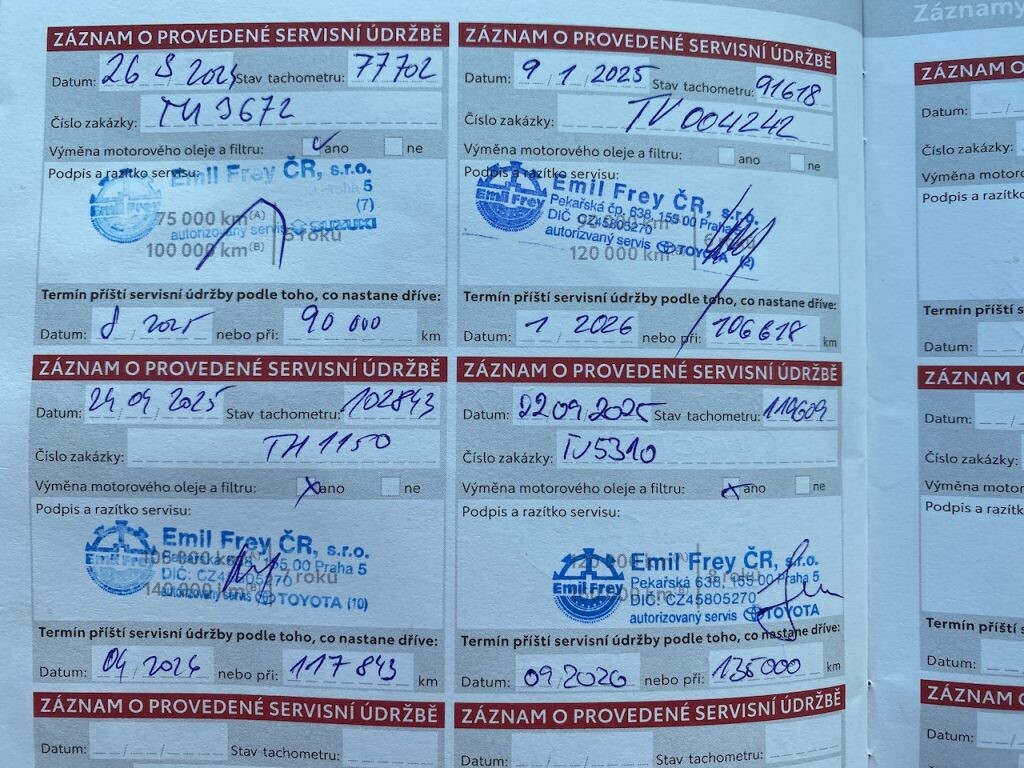 ZÁZNAM O PROVEDENÉ SERVISNÍ ÚDRŽBĚ
Datum: 26 Stav tachometru: 77702
Číslo zakázky:
Výměna motorového oleje a filtru: ano ne
Podpis a razítko servisu:
Emil Frey ČR, s.r.o.
Emil Frey
5
(7)
75 000 km (A)
autorizovaný servis SUZUKI
100 000 km (B)
roků
Termín příští servisní údržby podle toho, co nastane dříve:
Datum: 8 2025 nebo při: 90 000 km
ZÁZNAM O PROVEDENÉ SERVISNÍ ÚDRŽBĚ
Datum: 9 / 1 / 2025 Stav tachometru: 91618
Číslo zakázky: TV 004242
Výměna motorového oleje a filtru: ano ne
Podpis a razítko servisu:
Emil Frey ČR, s.r.o.
Emil Frey
Pekařská čp. 638, 155 00 Praha
DIČ CZ45805270
autorizovaný servis TOYOTA (2)
120 000 km
Termín příští servisní údržby podle toho, co nastane dříve:
Datum: 1 / 2026 nebo při: 106618 km
ZÁZNAM O PROVEDENÉ SERVISNÍ ÚDRŽBĚ
Datum: 24 04 2025 Stav tachometru: 102843
Číslo zakázky: TH 1150
Výměna motorového oleje a filtru: ano ne
Podpis a razítko servisu:
Emil Frey ČR, s.r.o.
Emil Frey
Pekařská 638, 155 00 Praha 5
DIČ: CZ45805270
roků
140 000 km (B)
autorizovaný servis TOYOTA (10)
Termín příští servisní údržby podle toho, co nastane dříve:
Datum: 04 2026 nebo při: 117 843 km
ZÁZNAM O PROVEDENÉ SERVISNÍ ÚDRŽBĚ
Datum: 22 09 2025 Stav tachometru:
Číslo zakázky: TV5310
Výměna motorového oleje a filtru: ano ne
Podpis a razítko servisu:
Emil Frey ČR, s.r.o.
Emil Frey
Pekařská 638, 155 00 Praha 5
DIČ: CZ45805270
8 roků
autorizovaný servis TOYOTA
Termín příští servisní údržby podle toho, co nastane dříve:
Datum: 09/2026 nebo při: 135000 km
ZÁZNAM O PROVEDENÉ SERVISNÍ ÚDRŽBĚ
Datum: Stav tachometru:
ZÁZNAM O PROVEDENÉ SERVISNÍ ÚDRŽBĚ
Datum: Stav tachometru:
Záznamy
ZÁZNAM O
Datum:
Číslo zakázky:
Výměna motorov
Podpis a razítk
Termín příští s
Datum:
ZÁZNAM O
Datum:
Číslo zakázky:
Výměna motorov
Podpis a razítk
Termín příští
Datum:
ZÁZNAM O
Datum: